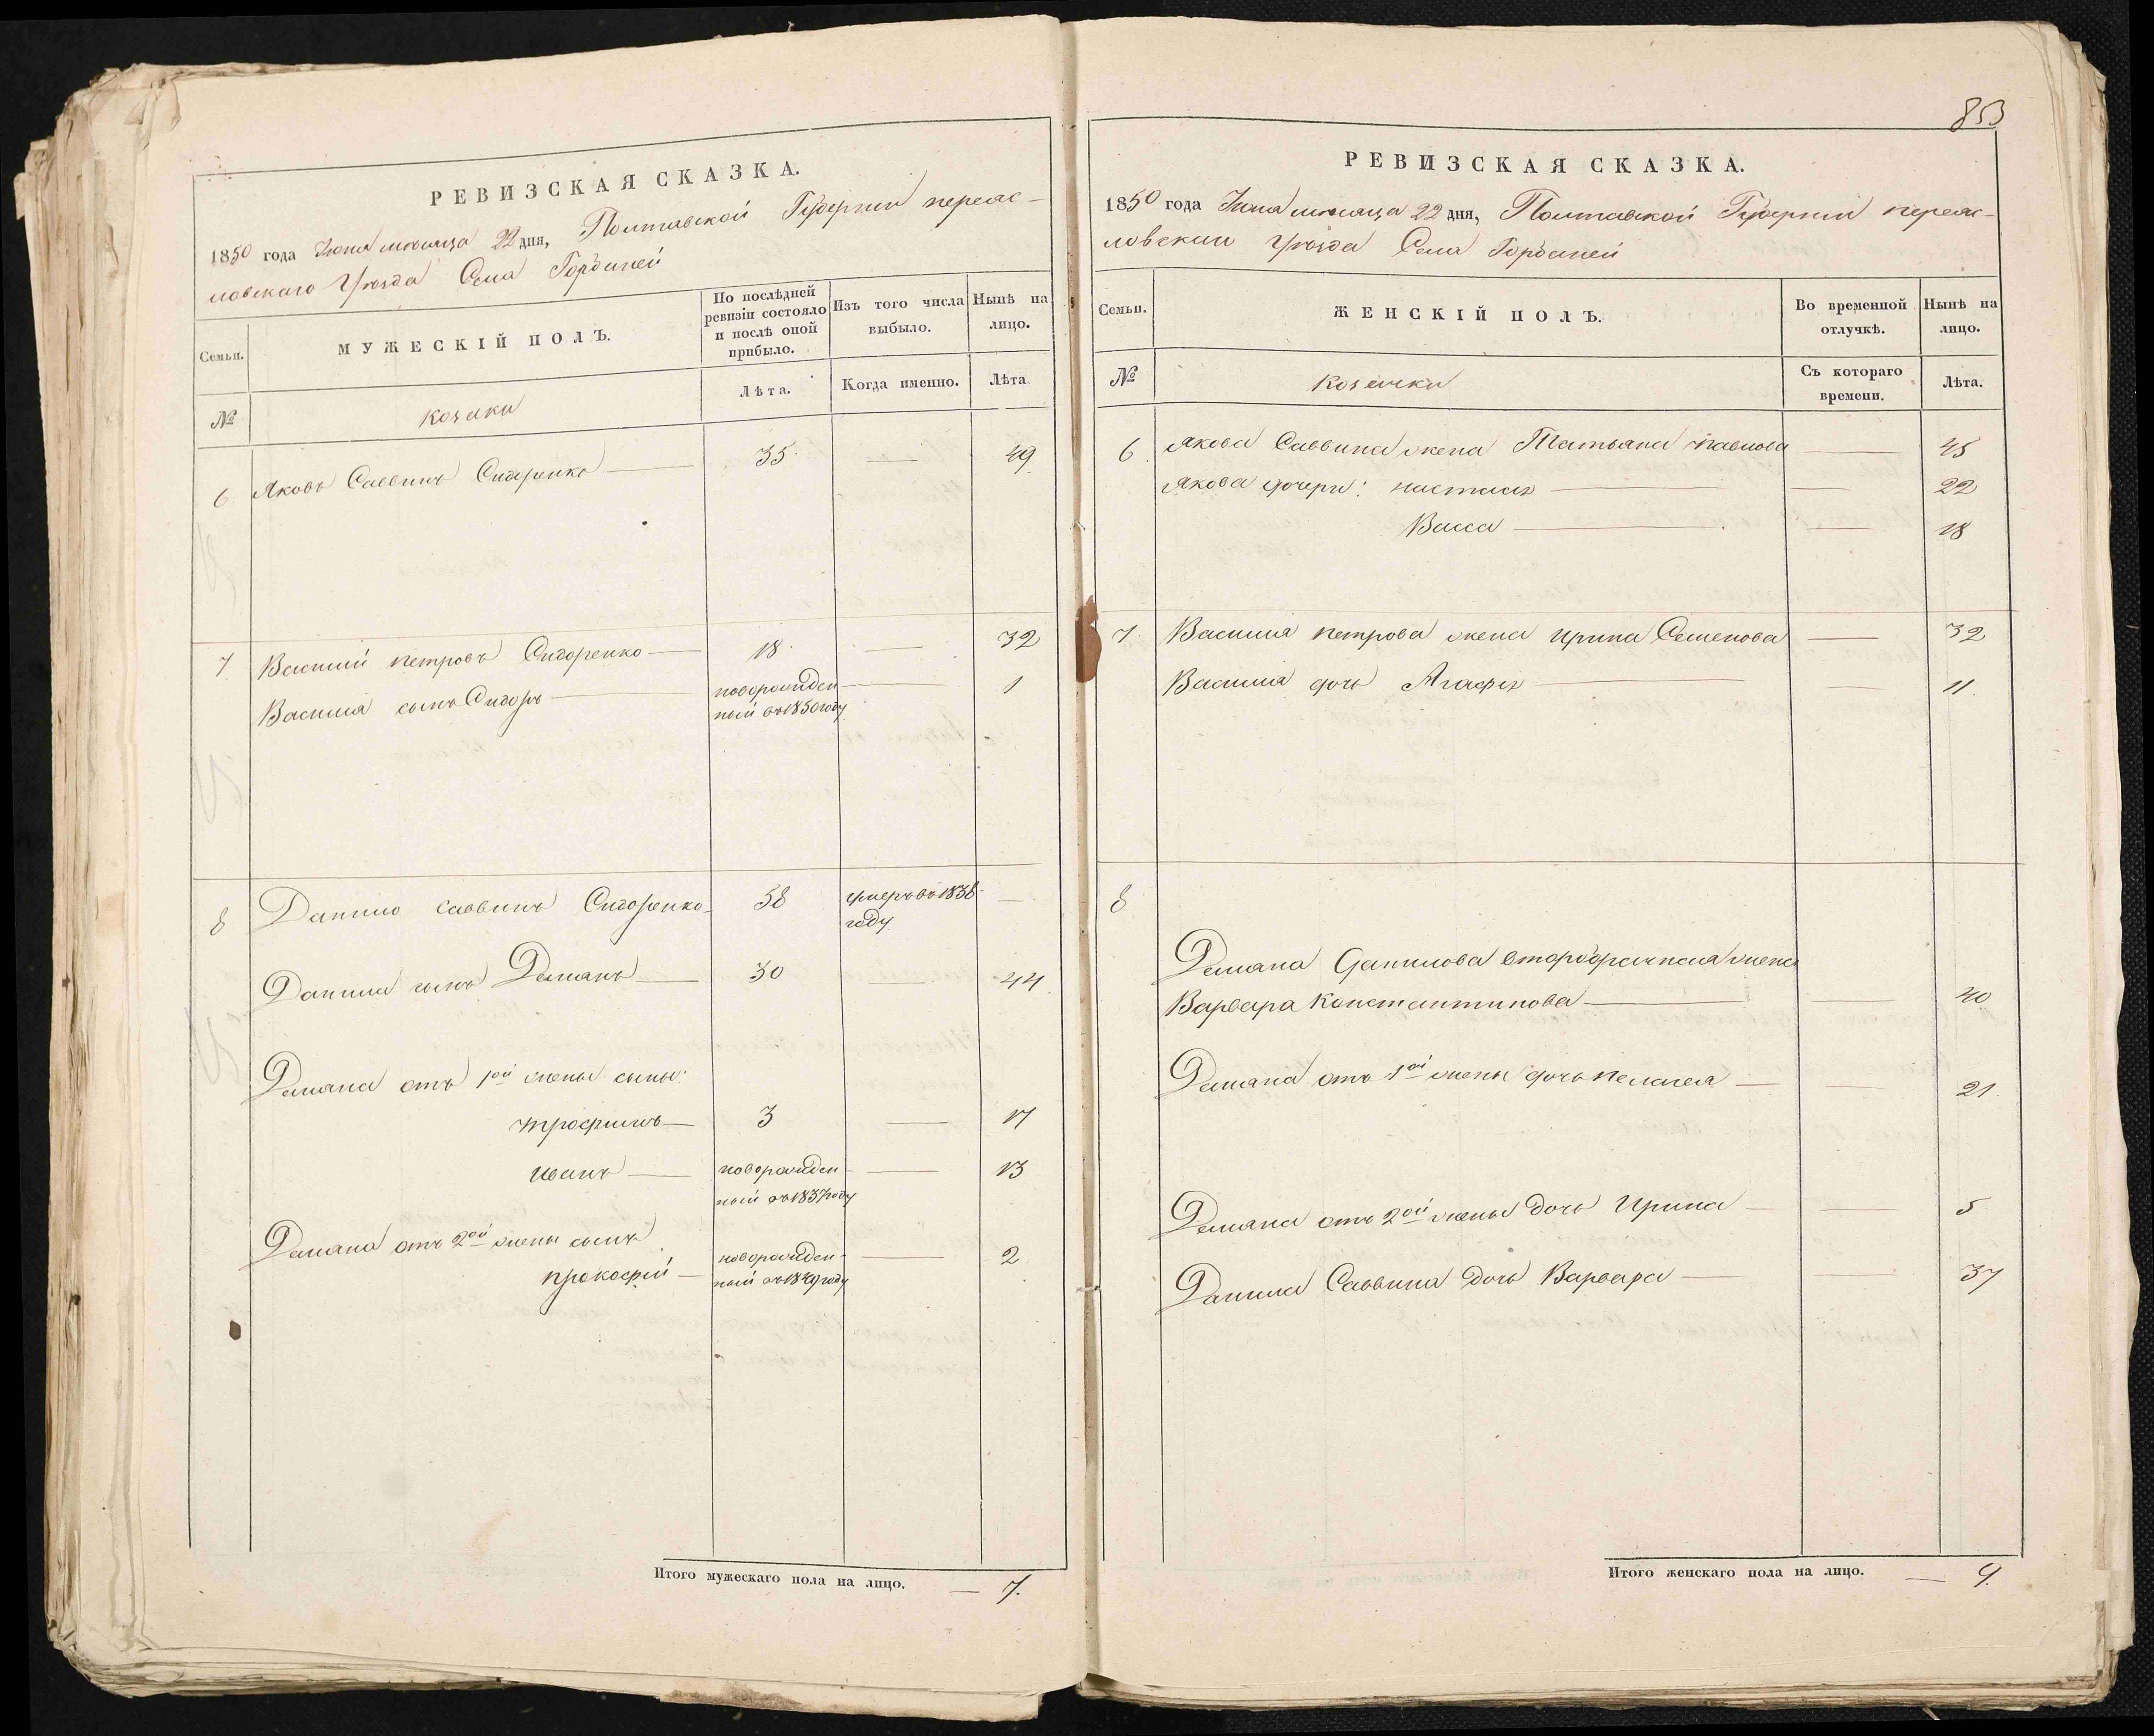 РЕВИЗСКАЯ СКАЗКА.
1850 года Июня месяца 22 дня, Полтавской Губернии переяс-
ловскаго Уезда Села Горбаней
Семьи.
МУЖЕСКІЙ ПОЛЪ.
По послѣдней ревизіи состояло и послѣ оной прибыло.
Изъ того числа выбыло.
Нынѣ на лицо.
№
козаки
Лѣта.
Когда именно.
Лѣта.
6. Яковъ Саввинъ Сидоренко — 35 — 49
7. Василий петровъ Сидоренко — 18 — 32
Василия сынъ Сидоръ — новорожден- — 1
ный въ 1850 году
8 Данило Саввинъ Сидоренко — 58 умеръ въ 1838 —
году
Данила сынъ Демянъ — 30 — 44
Демяна отъ 1ой жены сыны:
трофимъ — 3 — 17
иванъ — новорожден- — 13
ный въ 1837 году
Демяна отъ 2ой жены сынъ
прокофий — новорожден- — 2
ный въ 1849 году
Итого мужескаго пола на лицо. — 7.
853
РЕВИЗСКАЯ СКАЗКА.
1850 года Июня месяца 22 дня, Полтавской Губернии переяс-
ловскаго Уезда Села Горбаней
Семьи.
ЖЕНСКІЙ ПОЛЪ.
Во временной отлучкѣ.
Нынѣ на лицо.
№
козачки
Съ котораго времени.
Лѣта.
6. Якова Саввина жена Татьяна павлова — 45
Якова дочери: настасья — — 22
Васса — — 18
7. Василия петрова жена ирина Семенова — 32
Василия дочь Агафья — — 11
8
Демяна Данилова второбрачная жена
Варвара Константинова — — 40
Демяна отъ 1ой жены дочь пелагея — — 21
Демяна отъ 2ой жены дочь Ирина — — 5
Данила Саввина дочь Варвара — — 37
Итого женскаго пола на лицо. — 9.